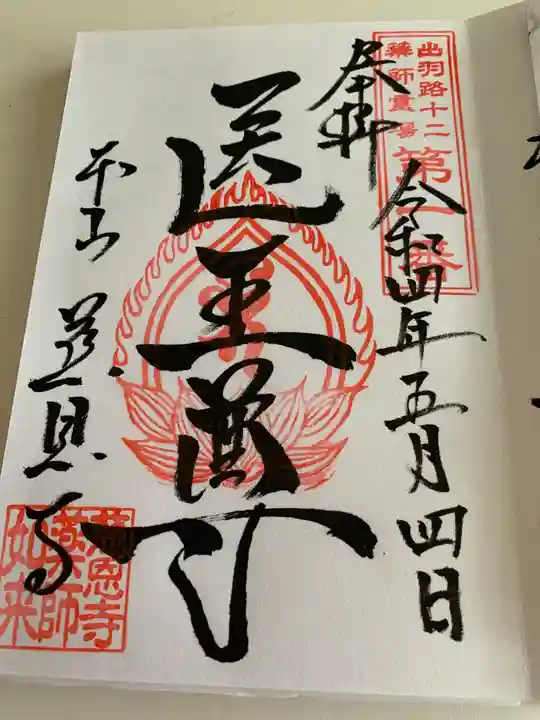 出羽路十二
薬師霊場
第一番
奉拝
令和四年五月四日
医王尊
本山
慈恩寺
慈恩寺
薬師
如来